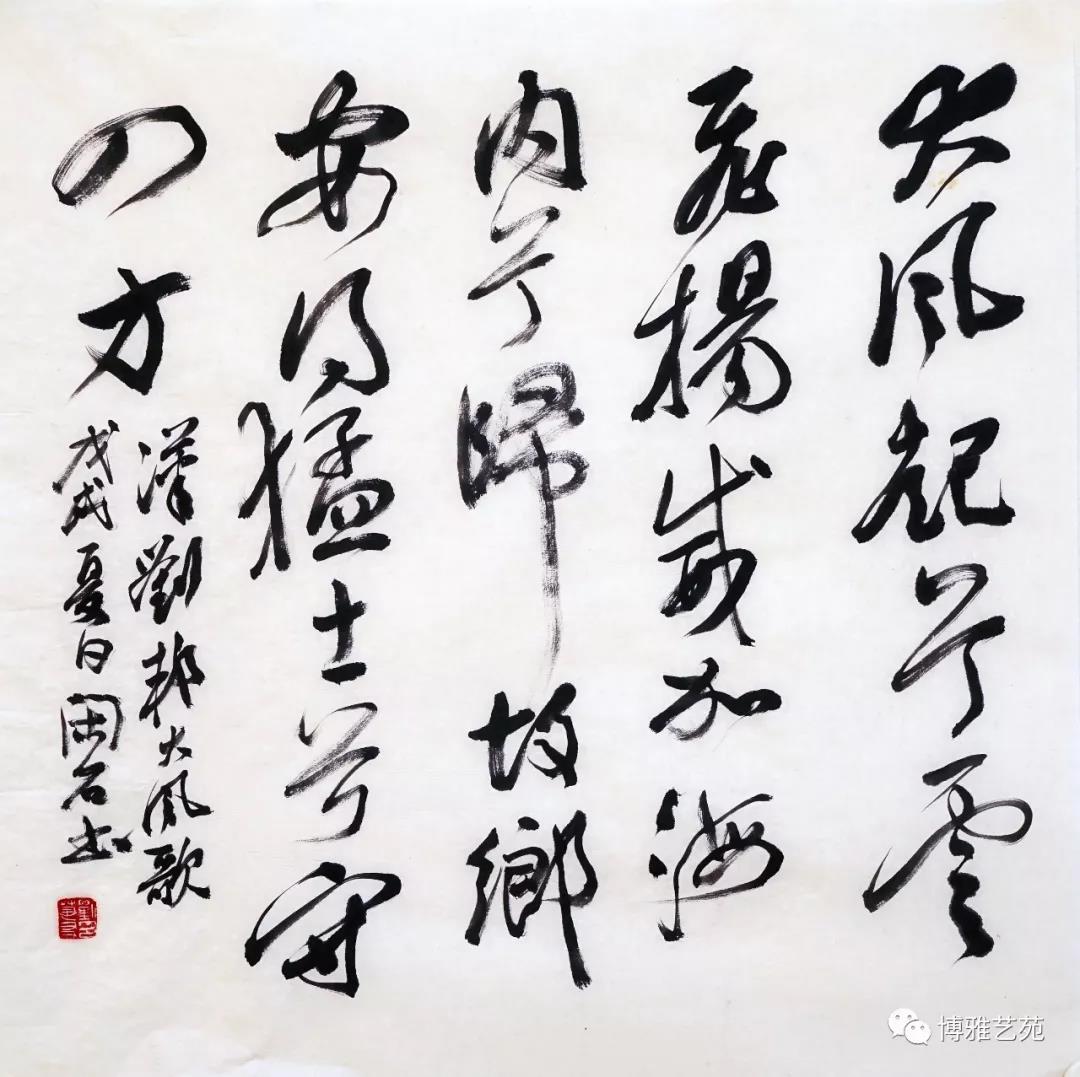 大風起兮雲
飛揚威加海
內兮歸故鄉
安得猛士兮守
四方
漢劉邦大風歌
戊戌夏日閑石书
博雅艺苑